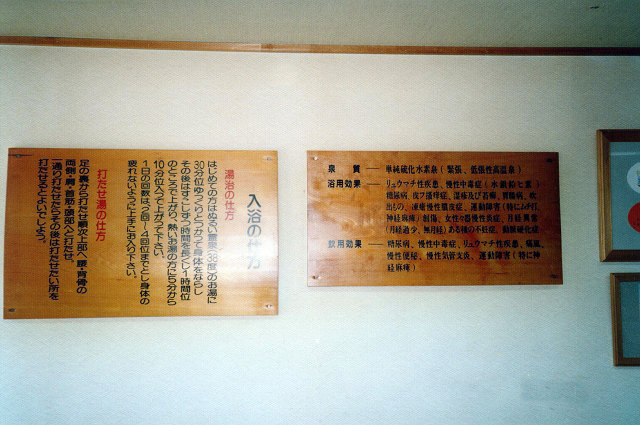 入浴の仕方
湯治の仕方
はじめての方はぬるい霊泉(38度)のお湯に
30分位ゆっくりとつかって身体をならし
その後はすこしずつ時間を長くし1時間位
のところで上がり、熱いお湯の方に5分から
10分位入って上がって下さい。
1日の回数は2回〜4回位までとし身体の
疲れないように上手にお入り下さい。
打たせ湯の仕方
足の裏から打たせ順次上部へ腰・背骨の
両側・肩・首筋・頭部へと打たせ、
一通り打たせたらその後は打たせたい所を
打たせるとよいでしょう。
泉 質 ── 単純硫化水素泉(緊張、低張性高温泉)
浴用効果 ── リュウマチ性疾患、慢性中毒症(水銀鉛七重)
糖尿病、皮フ掻痒症、湿疹及び苔癬、胃酸病、吹
出もの、運動障害(特によれ打、
神経麻痺)創傷、女性の器慢性炎症、月経異常
(月経過少、無月経)ある種の不妊症、動脈硬化症
飲用効果 ── 糖尿病、慢性中毒症、リュウマチ性疾患、痛風、
慢性便秘、慢性気管支炎、運動障害(特に神
経麻痺)